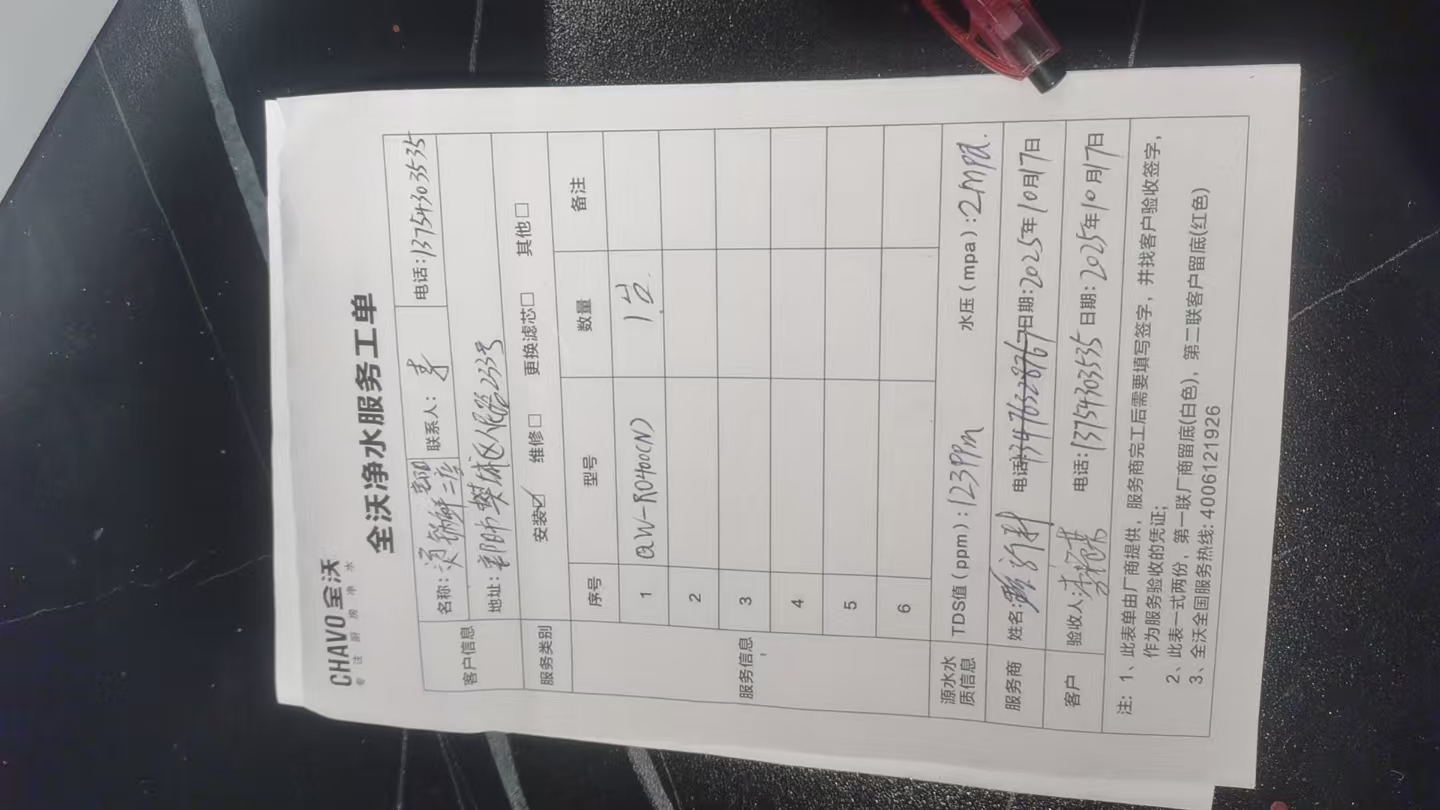 CHAVO全沃
专注厨房净水
全沃净水服务工单
客户信息
名称: 联系人: 李 电话:13754303535
地址: 樊城区人民路2335号
服务类别 安装☑ 维修□ 更换滤芯□ 其他□
服务信息
序号 型号 数量 备注
1 QW-RO400(N) 1台.
2
3
4
5
6
源水水质信息 TDS值(ppm):123ppm 水压(mpa):2mpa.
服务商 姓名: 电话13476328767日期:2025年10月17日
客户 验收人: 电话:13754303535 日期:2025年10月17日
注: 1、此表单由厂商提供,服务商完工后需要填写签字,并找客户验收签字,
作为服务验收的凭证;
2、此表一式两份,第一联厂商留底(白色),第二联客户留底(红色)
3、全沃全国服务热线: 4006121926